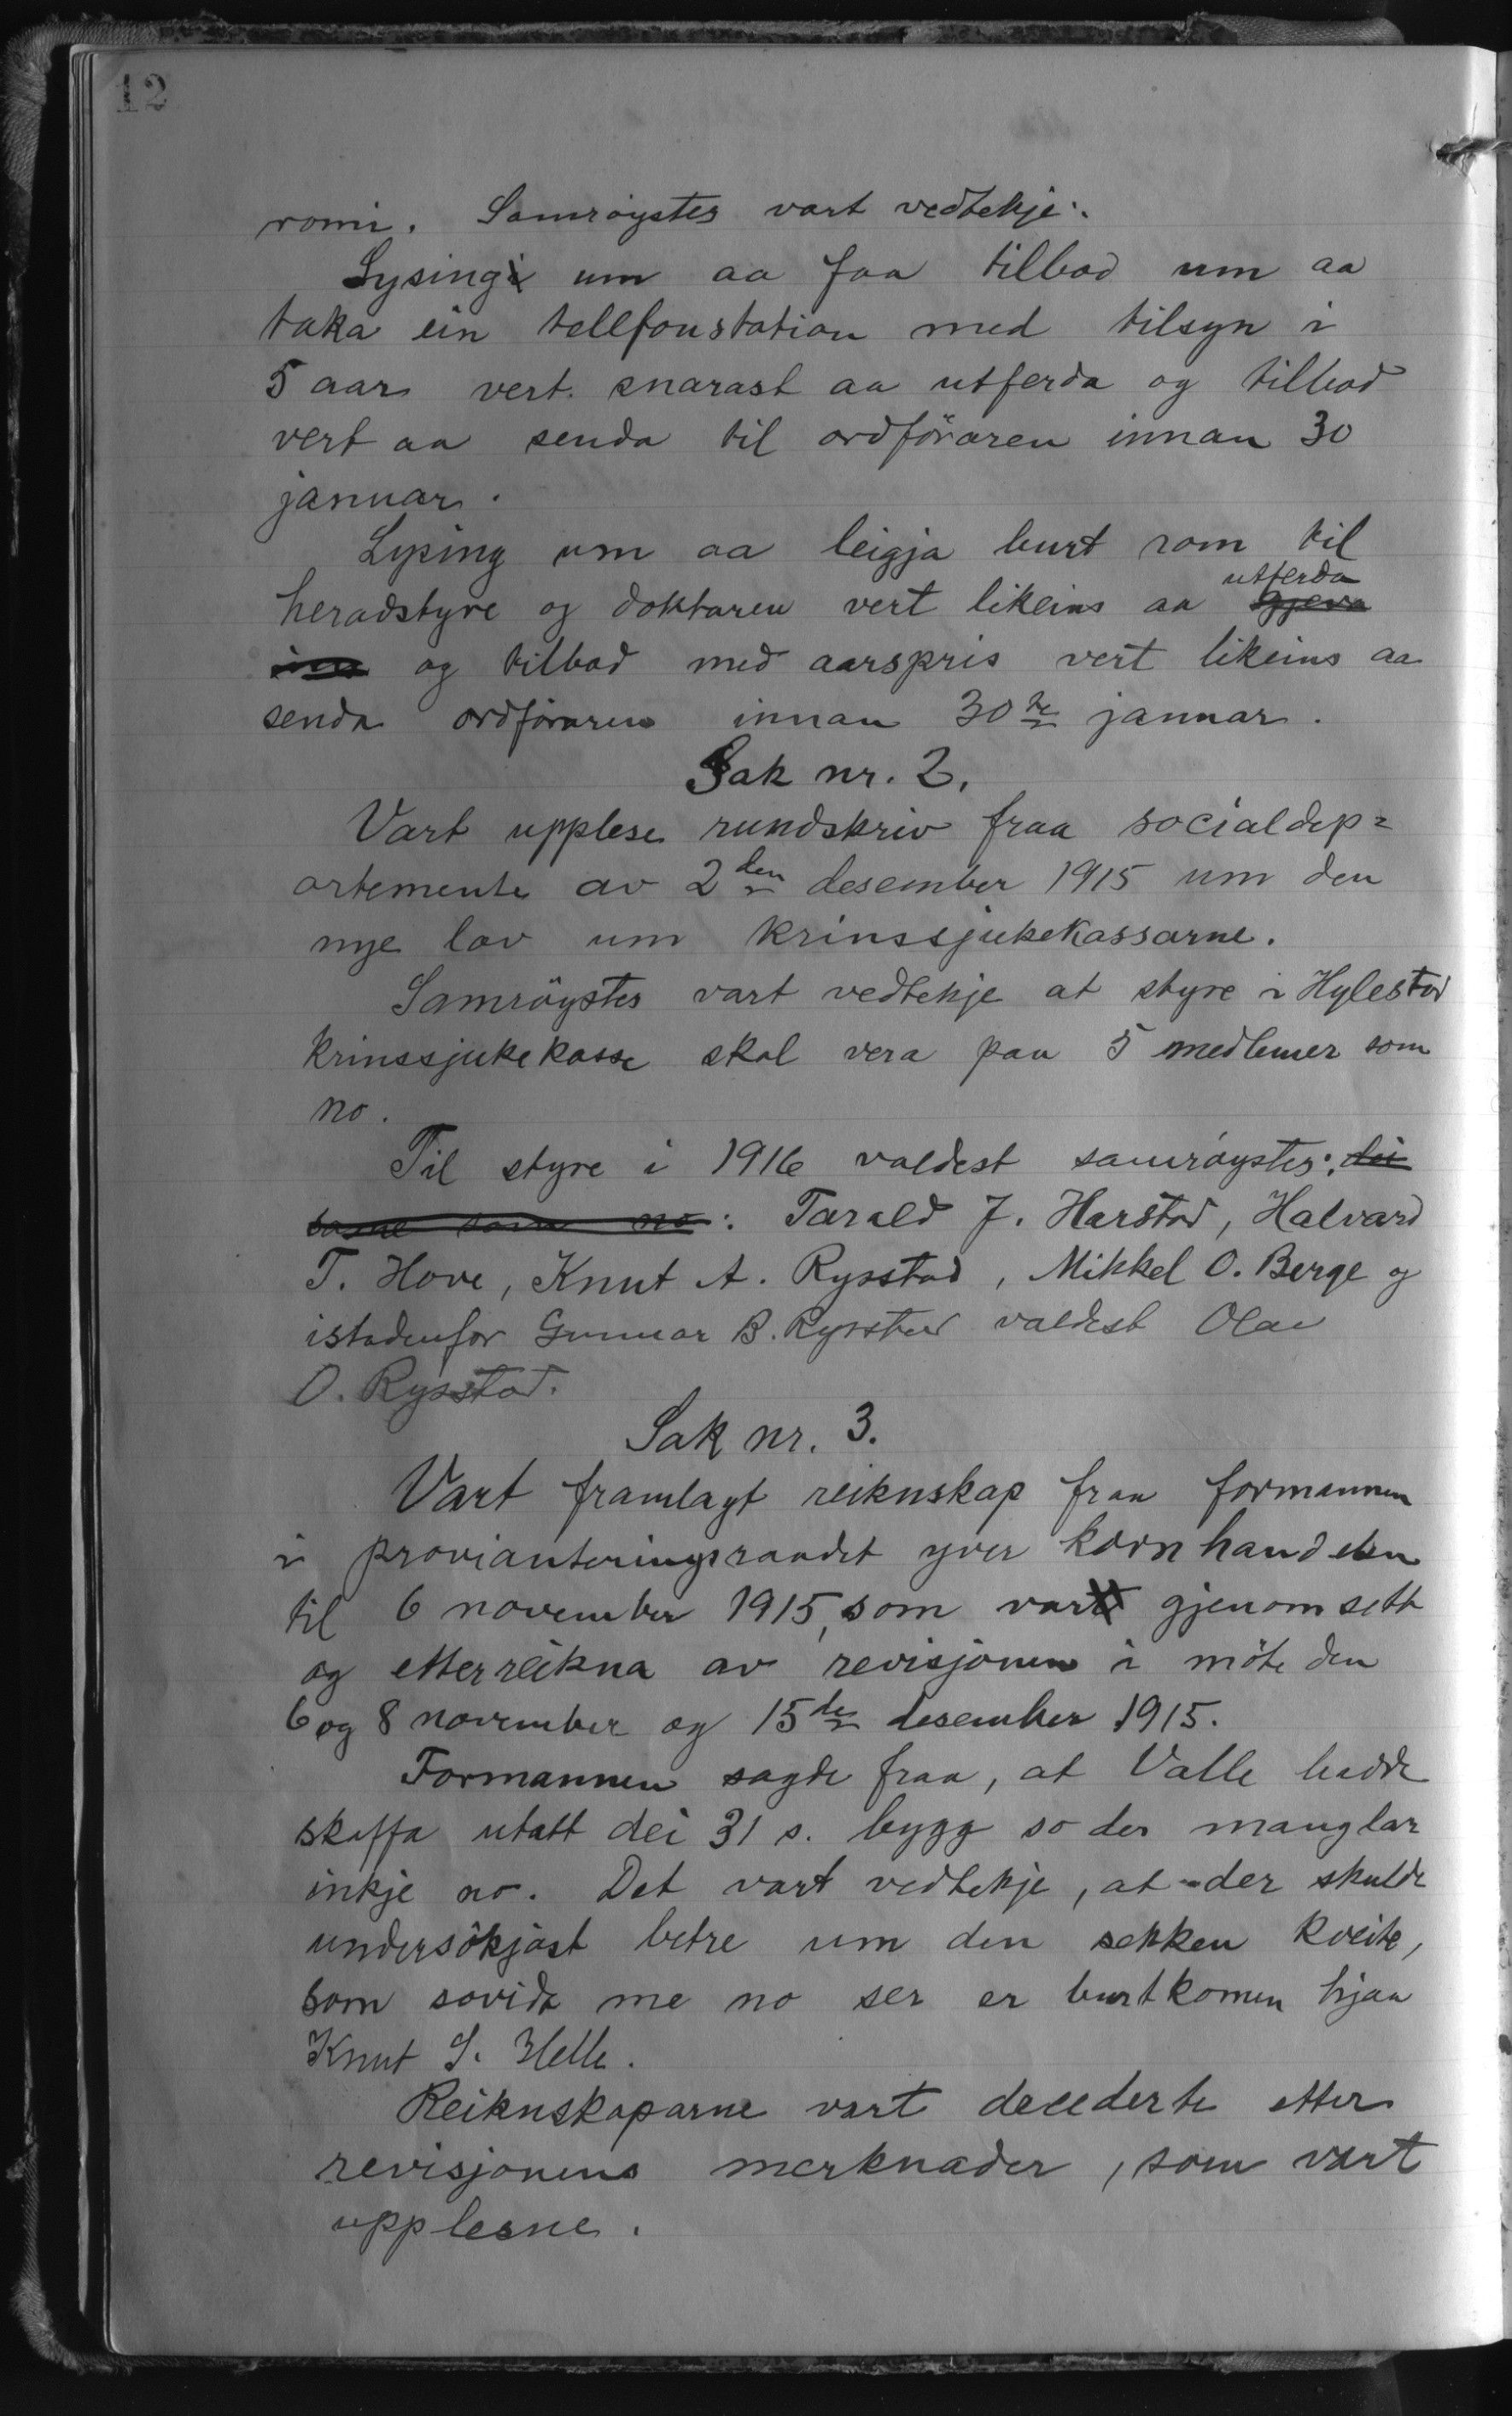 12
romi. Samröystes vart vedtekje:
Lysing um aa faa tilbod um aa
taka ein tellfonstation med tilsyn i
5 aar vert snarast aa utferda og tilbod
vert aa senda til ordföraren innan 30
januar.
Lysing um aa leigja burt rom til
utferda
heradstyre og doktaren vert likeins aa gjeva
inn og tilbod med aarspris vert likeins aa
senda ordföraren innan 30te januar.
Sak nr. 2.
Vart upplese rundskriv fraa socialdep=
artemente av 2den desember 1915 um den
nye lov um krinssjukekassarne.
Samröystes vart vedtekje at styre i Hylestad
krinssjukekasse skal vera paa 5 medlemer som
no.
Til styre i 1916 valdest samröystes: dei
same som no: Tarald J. Harstad, Halvard
T. Hove, Knut A. Rysstad, Mikkel O. Berge og
istadenfor Gunnar B. Rysstad valdest Olav
O. Rysstad.
Sak nr. 3.
Vart framlagt reiknskap fraa formannen
i provianteringsraadet yver kornhandelen
til 6 november 1915, som vart gjenomsett
og etterreikna av revisjonen i möte den
6 og 8 november og 15de desember 1915.
Formannen sagde fraa, at Valle hadde
skaffa utatt dei 31 s. bygg so der manglar
inkje no. Det vart vedtekje, at der skulde
undersökjast betre um den sekken kveite,
som sovidt me no ser er burtkomen hjaa
Knut S. Helle.
Reiknskaparne vart decederte etter
revisjonens merknader, som vart
upplesne.